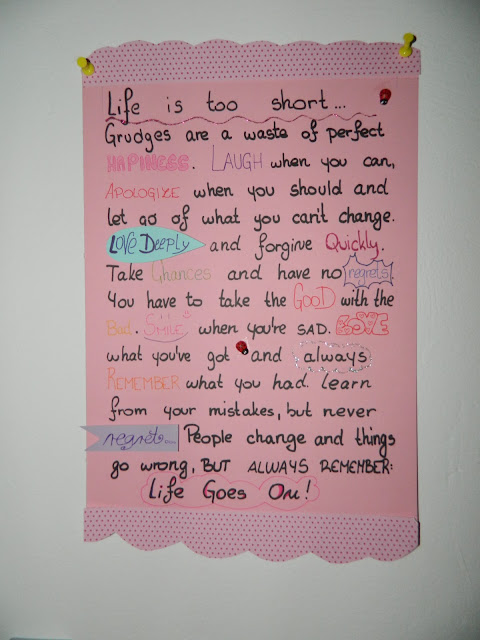 Life is too short...
Grudges are a waste of perfect
HAPINESS. LAUGH when you can,
APOLOGIZE when you should and
let go of what you can't change.
LOVE DEEPLY and forgive Quickly.
Take Chances and have no regrets.
You have to take the GOOD with the
Bad. SMILE when you're SAD. LOVE
what you've got and always
REMEMBER what you had. learn
from your mistakes, but never
regret... People change and things
go wrong, BUT ALWAYS REMEMBER:
Life Goes On!